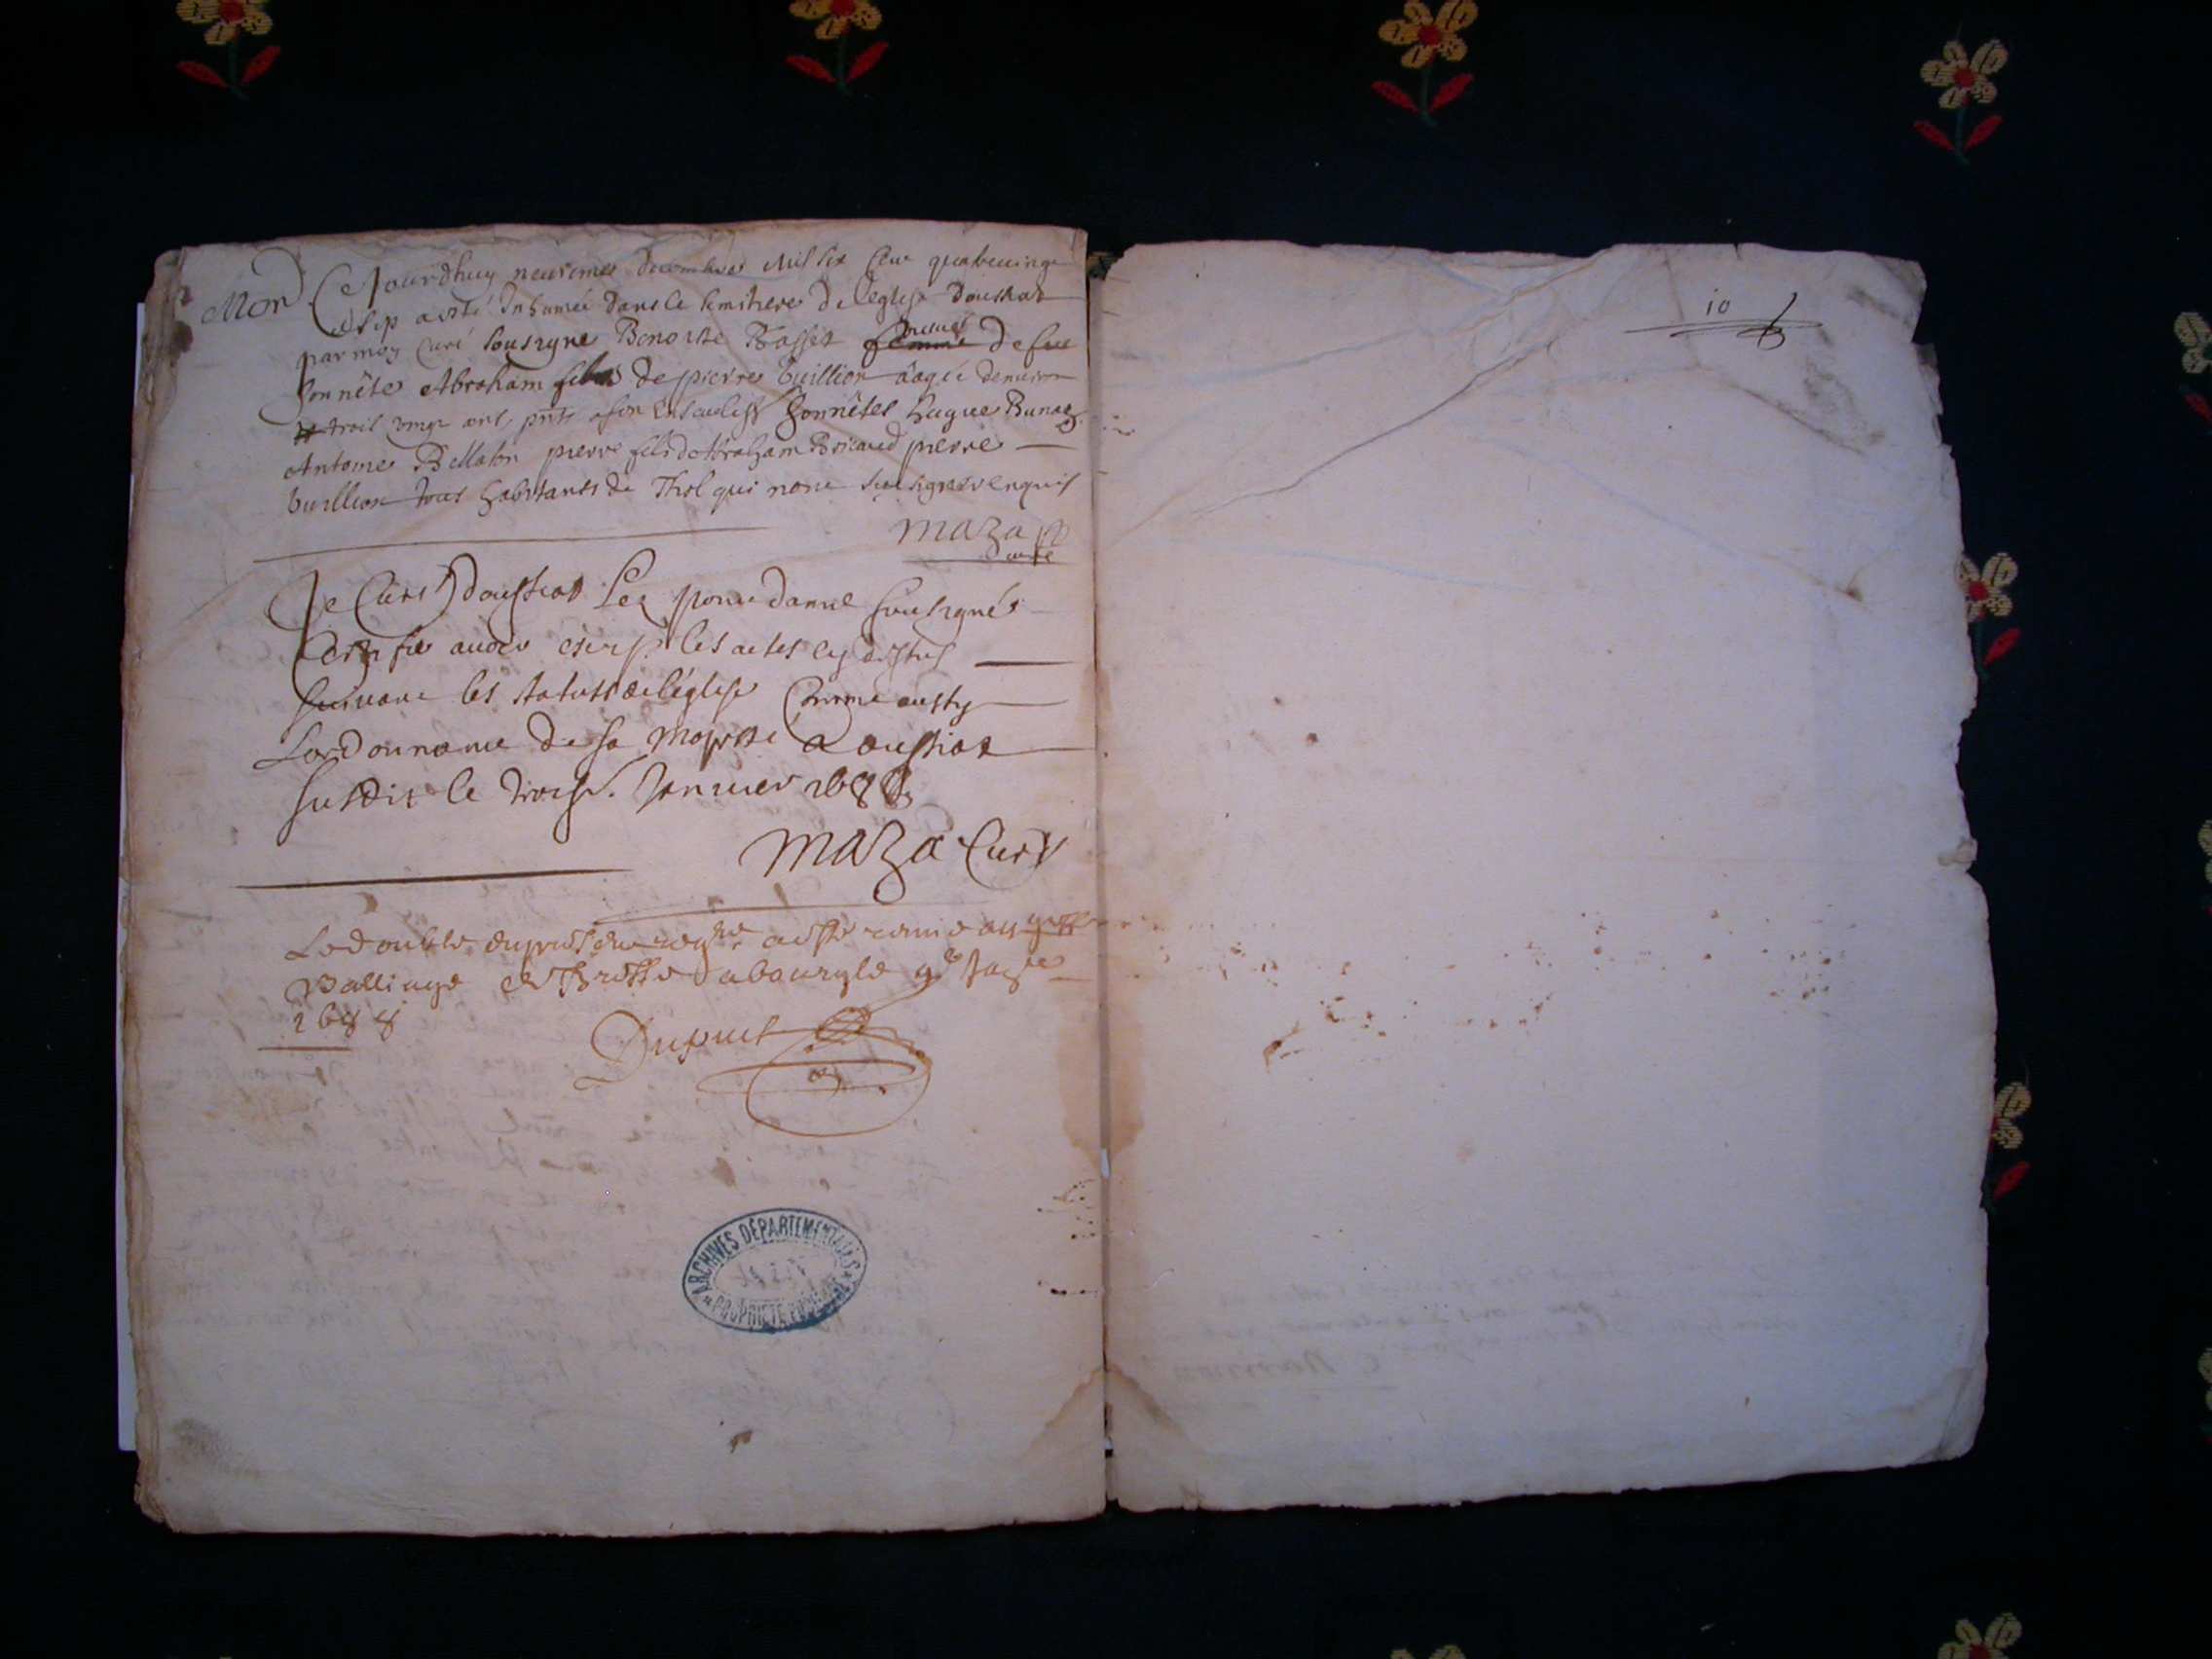 Mort
Ce Jourdhuy neusiemes decembres Mil six Cent quatrevingt
et sep a esté Inhumée dans le semitiere de leglise doussiat
par moy Curé sousigne Benoiste Basset femme veuve de feu
honnête Abraham fils de pierre Vuillion aagée denviron
trois vingt ans, pnts a son honnêtes hugue Bunaz
Antoine Bellaton pierre fils d'Abraham Bricaud pierre
Vuillion tous habitants de Thol qui nont sceu signer enquis
Maza
Curé
Je Curé doussiat Les ponc dannel sousignés
Certifie avoir escrip les actes cy dessus
suivant les statuts de l'église Comme aussy
Lordonnance de sa Majesté a oussiat
susdit le troisr. Janvier 1688
Maza Curé
Le double du présent regre a esté remis au greffe
Balliage de Bresse a bourg le 9e Janier
1688
Dupuis
ARCHIVES DÉPARTEMENTALES
AIN
PROPRIETE PUBLIQUE
10